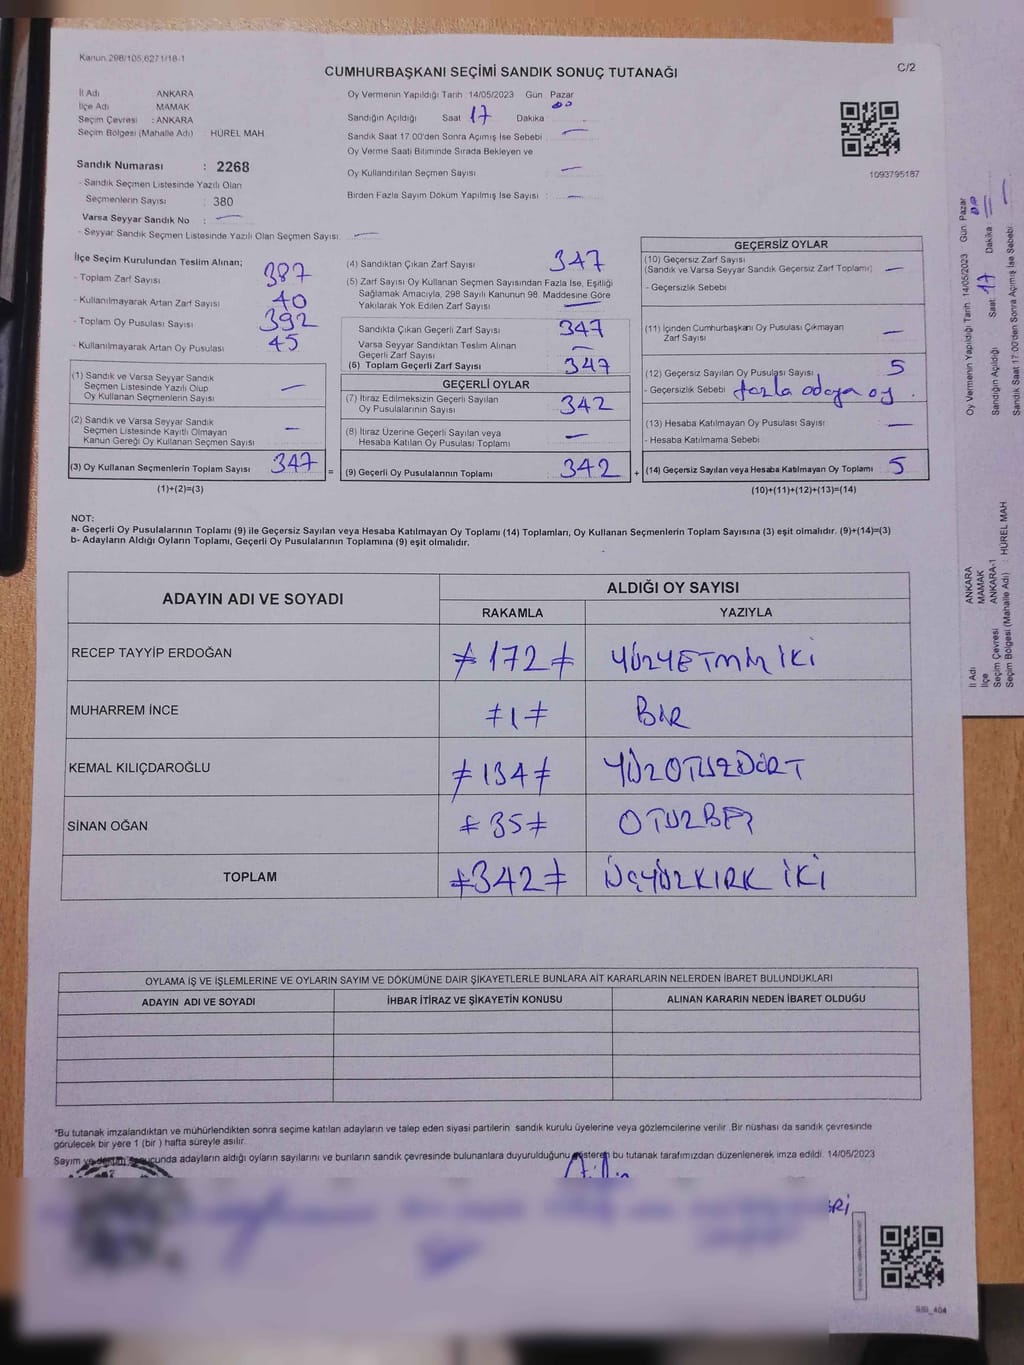 Kanun 298/105,6271/18-1
C/2
CUMHURBAŞKANI SEÇİMİ SANDIK SONUÇ TUTANAĞI
İl Adı ANKARA
İlçe Adı MAMAK
Seçim Çevresi : ANKARA
Seçim Bölgesi (Mahalle Adı) : HÜREL MAH
Sandık Numarası : 2268
- Sandık Seçmen Listesinde Yazılı Olan
Seçmenlerin Sayısı : 380
Varsa Seyyar Sandık No : —
- Seyyar Sandık Seçmen Listesinde Yazılı Olan Seçmen Sayısı: —
Oy Vermenin Yapıldığı Tarih :14/05/2023 Gün Pazar
Sandığın Açıldığı Saat 17 Dakika : 00
Sandık Saat 17:00'den Sonra Açımış İse Sebebi : —
Oy Verme Saati Bitiminde Sırada Bekleyen ve
Oy Kullandırılan Seçmen Sayısı : —
Birden Fazla Sayım Döküm Yapılmış İse Sayısı : —
1093795187
İlçe Seçim Kurulundan Teslim Alınan;
- Toplam Zarf Sayısı 387
- Kullanılmayarak Artan Zarf Sayısı 40
- Toplam Oy Pusulası Sayısı 392
- Kullanılmayarak Artan Oy Pusulası 45
(1) Sandık ve Varsa Seyyar Sandık
Seçmen Listesinde Yazılı Olup
Oy Kullanan Seçmenlerin Sayısı —
(2) Sandık ve Varsa Seyyar Sandık
Seçmen Listesinde Kayıtlı Olmayan
Kanun Gereği Oy Kullanan Seçmen Sayısı —
(3) Oy Kullanan Seçmenlerin Toplam Sayısı 347 =
(1)+(2)=(3)
(4) Sandıktan Çıkan Zarf Sayısı 347
(5) Zarf Sayısı Oy Kullanan Seçmen Sayısından Fazla İse, Eşitliği
Sağlamak Amacıyla, 298 Sayılı Kanunun 98. Maddesine Göre
Yakılarak Yok Edilen Zarf Sayısı —
Sandıkta Çıkan Geçerli Zarf Sayısı 347
Varsa Seyyar Sandıktan Teslim Alınan
Geçerli Zarf Sayısı —
(6) Toplam Geçerli Zarf Sayısı 347
GEÇERLİ OYLAR
(7) İtiraz Edilmeksizin Geçerli Sayılan
Oy Pusulalarının Sayısı 342
(8) İtiraz Üzerine Geçerli Sayılan veya
Hesaba Katılan Oy Pusulası Toplamı —
(9) Geçerli Oy Pusulalarının Toplamı 342 +
GEÇERSİZ OYLAR
(10) Geçersiz Zarf Sayısı
(Sandık ve Varsa Seyyar Sandık Geçersiz Zarf Toplamı) —
- Geçersizlik Sebebi
(11) İçinden Cumhurbaşkanı Oy Pusulası Çıkmayan
Zarf Sayısı —
(12) Geçersiz Sayılan Oy Pusulası Sayısı 5
- Geçersizlik Sebebi fazla adaya oy .
(13) Hesaba Katılmayan Oy Pusulası Sayısı —
- Hesaba Katılmama Sebebi
(14) Geçersiz Sayılan veya Hesaba Katılmayan Oy Toplamı 5
(10)+(11)+(12)+(13)=(14)
NOT:
a- Geçerli Oy Pusulalarının Toplamı (9) ile Geçersiz Sayılan veya Hesaba Katılmayan Oy Toplamı (14) Toplamları, Oy Kullanan Seçmenlerin Toplam Sayısına (3) eşit olmalıdır. (9)+(14)=(3)
b- Adayların Aldığı Oyların Toplamı, Geçerli Oy Pusulalarının Toplamına (9) eşit olmalıdır.
ADAYIN ADI VE SOYADI ALDIĞI OY SAYISI
RAKAMLA YAZIYLA
RECEP TAYYİP ERDOĞAN ≠172≠ YÜZYETMİŞ İKİ
MUHARREM İNCE ≠1≠ BİR
KEMAL KILIÇDAROĞLU ≠134≠ YÜZOTUZDÖRT
SİNAN OĞAN ≠35≠ OTUZBEŞ
TOPLAM ≠342≠ ÜÇYÜZKIRK İKİ
OYLAMA İŞ VE İŞLEMLERİNE VE OYLARIN SAYIM VE DÖKÜMÜNE DAİR ŞİKAYETLERLE BUNLARA AİT KARARLARIN NELERDEN İBARET BULUNDUKLARI
ADAYIN ADI VE SOYADI İHBAR İTİRAZ VE ŞİKAYETİN KONUSU ALINAN KARARIN NEDEN İBARET OLDUĞU
*Bu tutanak imzalandıktan ve mühürlendikten sonra seçime katılan adayların ve talep eden siyasi partilerin sandık kurulu üyelerine veya gözlemcilerine verilir. Bir nüshası da sandık çevresinde
görülecek bir yere 1 (bir ) hafta süreyle asılır.
Sayım ve sonucunda adayların aldığı oyların sayılarını ve bunların sandık çevresinde bulunanlara duyurulduğunu gösteren bu tutanak tarafımızdan düzenlenerek imza edildi. 14/05/2023
Oy Vermenin Yapıldığı Tarih: 14/05/2023 Gün Pazar
Sandığın Açıldığı Saat 17 Dakika : 00
Sandık Saat 17:00'den Sonra Açımış İse Sebebi
İl Adı ANKARA
İlçe MAMAK
Seçim Çevresi ANKARA-1
Seçim Bölgesi (Mahalle Adı) : HÜREL MAH.